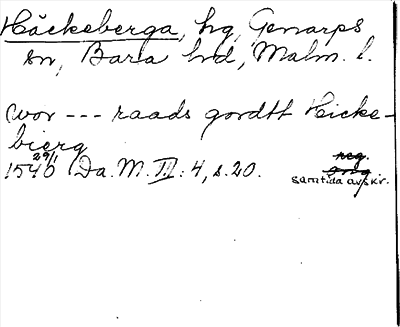 Häckeberga, hg, Genarps
sn, Bara hd, Malm. l.
wor --- raads gordtt Hicke-
bierg
29/1
1540 Da. M. III: 4, s. 20.
reg.
orig
samtida avskr.